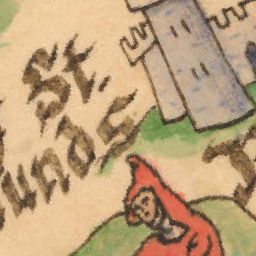 St.
unds